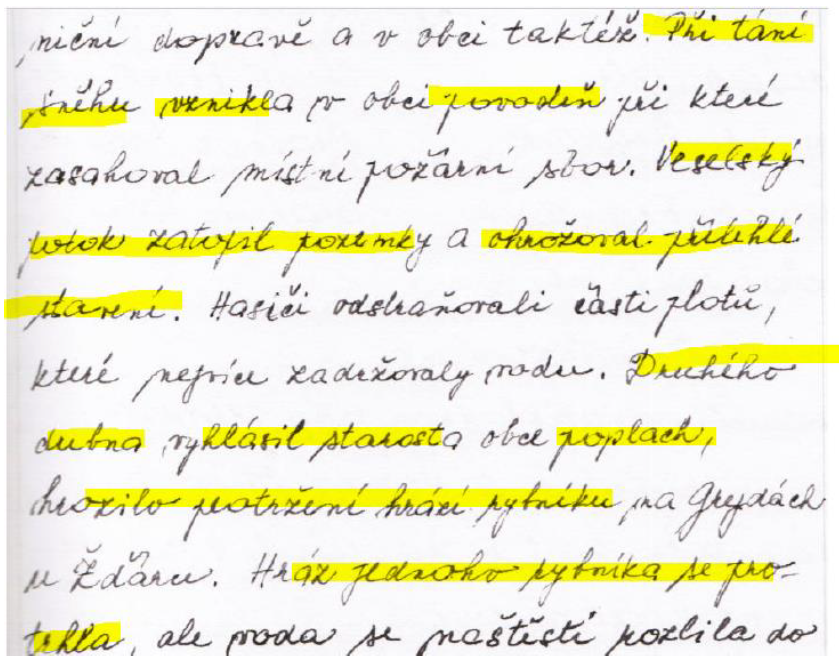 niční dopravě a v obci taktéž. Při tání
sněhu vznikla v obci povodeň při které
zasahoval místní požární sbor. Veselský
potok zatopil pozemky a ohrožoval přilehlé
stavení. Hasiči odstraňovali části plotů,
které nejvíce zadržovaly vodu. Druhého
dubna vyhlásil starosta obce poplach,
hrozilo protržení hrází rybníku na Grejdách
u Žďáru. Hráz jednoho rybníka se pro-
trhla, ale voda se naštěstí rozlila do